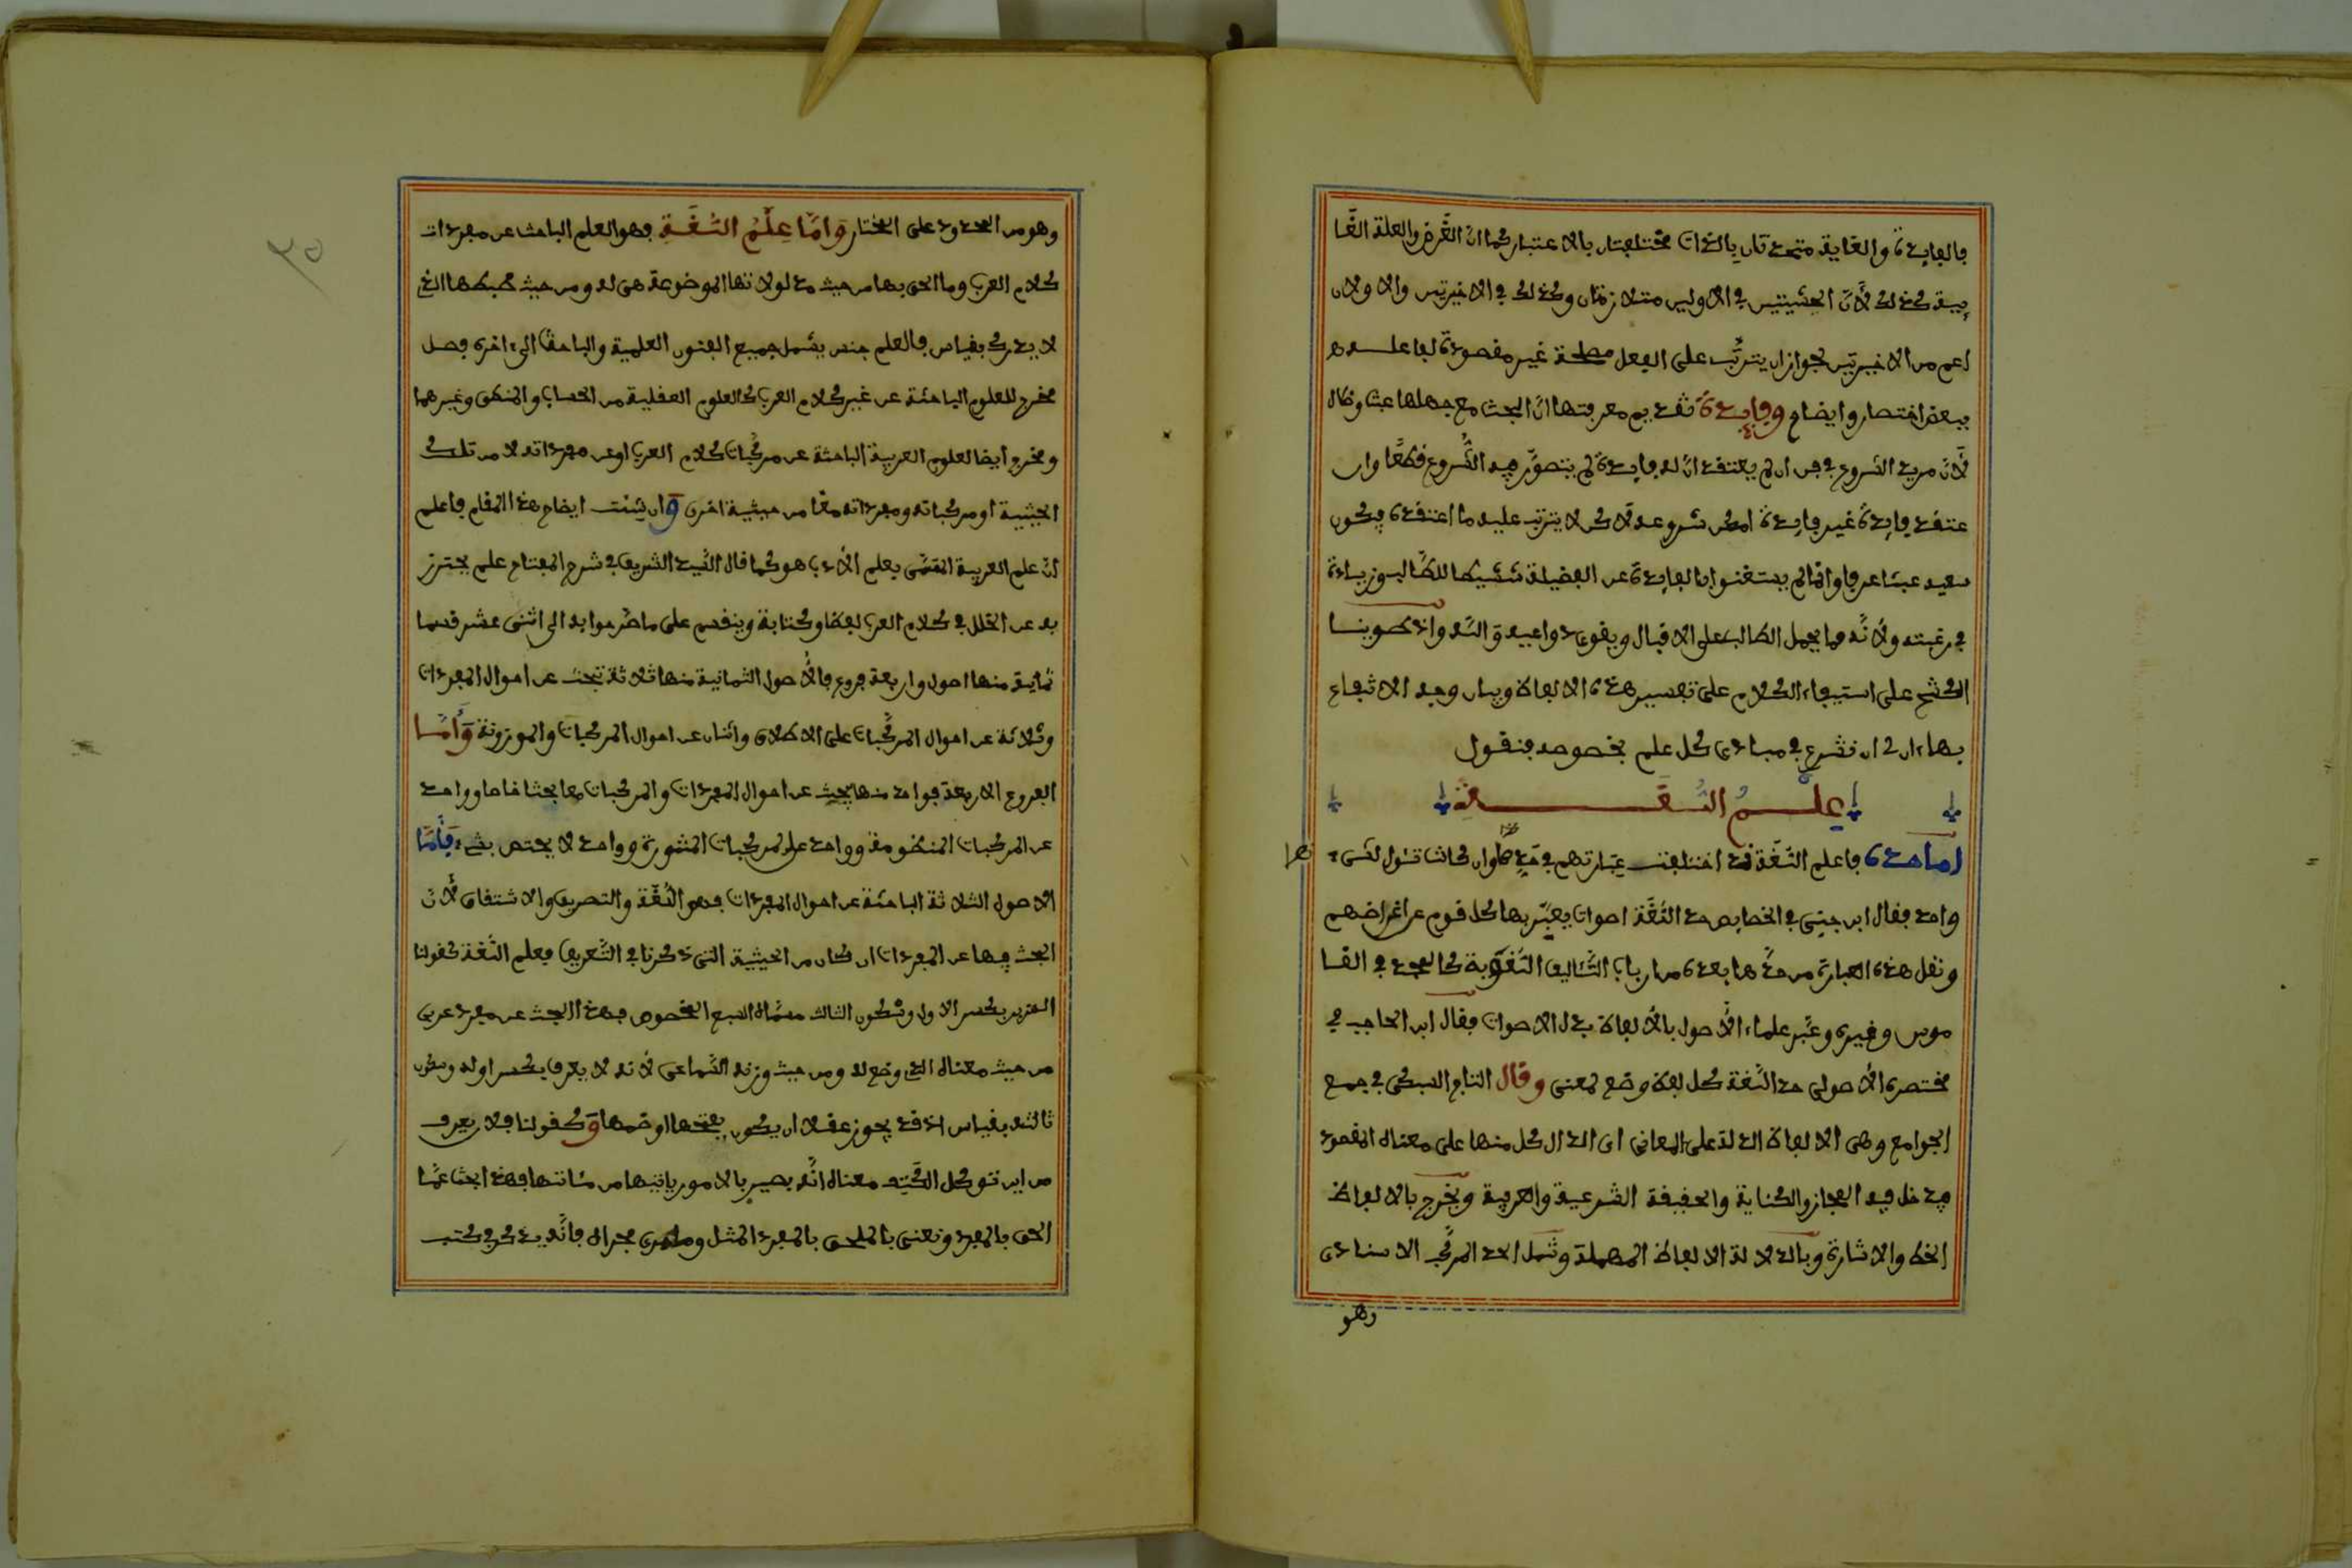 فالفايدة والغاية متحدتان بالذات مختلفتان بالاعتبار كما ان الغرض والعلة الغا
ئية كذلك لأن الحيثيتين في الاوليين متلازمتان وكذلك في الاخيرتين والاولان
اعم من الاخيرتين لجواز ان يترتب على الفعل مصلحة غير مقصودة لفاعله
ببعض اختصار وايضاح وفايدة تقديم معرفتها ان البحث مع جهلها عبث وضلال
لأن مريد الشروع في فن ان لم يعتقد ان له فايدة لم يتصور فيه الشروع قطعا وان
عتقد فايدة غير فايدة امكن شروعه لاكن لا يترتب عليه ما اعتقده فيكون
سعيه عبثا عرفا وانما لم يستغنوا بالفايدة عن الفضيلة تنشيطا للطالب وزيادة
في رغبته ولأنه مما يحمل الطالب على الاقبال ويقوي دواعيه والله واذ طوينا
الكشح على استيفاء الكلام على تفسير هذه الالفاظ وبيان وجه الانتفاع
بها ان لنا ان نشرع في مبادي كل علم بخصوصه فنقول
علم اللغة
اما حده فاعلم اللغة قد اختلفت عبارتهم في حدها وان كانت تئول لشيء
واحد فقال ابن جني في الخصايص حد اللغة اصوات يعبر بها كل قوم عن اغراضهم
ونقل هذه العبارة من حدها بعده من ارباب التئاليف اللغوية كالمجد في القا
موس وغيره وعبر علماء الأصول بالألفاظ بدل الاصوات فقال ابن الحاجب في
مختصره الأصولي حد اللغة كل لفظ وضع لمعنى وقال التاج السبكي في جمع
الجوامع وهي الالفاظ الدالة على المعاني اي الدال كل منها على معناه المقصود
فدخل فيه المجاز والكناية والحقيقة الشرعية والعرفية ويخرج بالالفاظ
الخط والاشارة وبالدلالة الالفاظ المهملة وشمل الحد المركب الاسنادي
وهو
وهو من المحدود على المختار واما علم اللغة فهو العلم الباحث عن مفردات
كلام العرب وما الحق بها من حيث مدلولاتها الموضوعة هي له ومن حيث ضبطها الذي
لا يدرك بقياس فالعلم جنس يشمل جميع الفنون العلمية والباحث الى اخره فصل
مخرج للعلوم الباحثة عن غير كلام العرب كالعلوم العقلية من الحساب والمنطق وغيرهما
ومخرج ايضا لعلوم العربية الباحثة عن مركبات كلام العرب او عن مفرداته لا من تلك
الحيثية او مركباته ومفرداته معا من حيثية اخرى وان شئت ايضاح هذا المقام فاعلم
ان علم العربية المسمى بعلم الأدب هو كما قال السيد الشريف في شرح المفتاح علم يحترز
به عن الخلل في كلام العرب لفظا وكتابة وينقسم على ما صرحوا به الى اثني عشر قسما
ثمانية منها اصول واربعة فروع فالأصول الثمانية منها ثلاثة تبحث عن احوال المفردات
وثلاثة عن احوال المركبات على الاطلاق واثنان عن احوال المركبات والموزونة وأما
الفروع الاربعة فواحد منها يبحث عن احوال المفردات والمركبات معا بحثا خاصا وواحد
عن المركبات المنظومة وواحد على المركبات المنثورة وواحد لا يختص بشيء فأما
الاصول الثلاثة الباحثة عن احوال المفردات فهو اللغة والتصريف والاشتقاق لأن
البحث فيها عن المفردات ان كان من الحيثية التي ذكرنا في التعريف فعلم اللغة كقولنا
الهزبر بكسر الاول وسكون الثالث معناه السبع المخصوص فهذا البحث عن مفرد عربي
من حيث معناه الذي وضع له ومن حيث وزنه السماعي لأنه لا يعرف بكسر اوله وسكون
ثالثه بقياس اذ قد يجوز عقلا ان يكون بفتحها او ضمها وكقولنا فلان يعرف
من اين تؤكل الكتف معناه انه بصير بالامور ياتيها من مئاتتها فهذا بحث عما
الحق بالمفرد ونعني بالملحق بالمفرد المثل وما جرى مجراه فانه يذكر في كتب